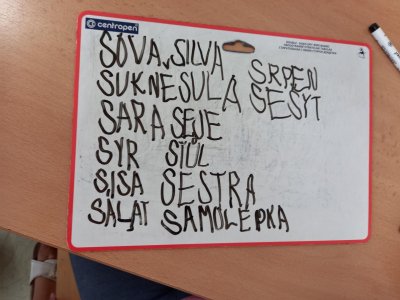 centropen
SOVA, SILVA
SUKNE SULA SRPEN
SARA SEJE SEŠYT
SYR STŮL
SISA SESTRA
SALAT SAMOLEPKA